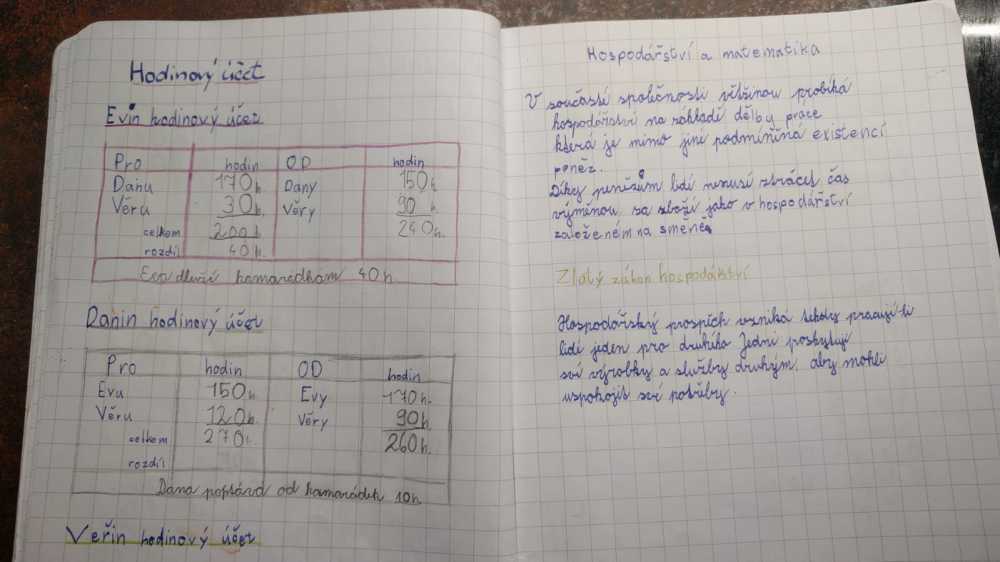 Hodinový účet
Evin hodinový účet
Pro hodin OD hodin
Danu 170h. Dany 150h.
Věru 30h. Věry 90 h.
celkem 200h. 240h.
rozdíl 40h.
Eva dluží kamarádkám 40h.
Danin hodinový účet
Pro hodin OD hodin
Evu 150h. Evy 170h.
Věru 120h. Věry 90h.
celkem 270h. 260h.
rozdíl
Dana poptává od kamarádek 10h
Veřin hodinový účet
Hospodářství a matematika
V současté společnosti většinou probíká
hospodářství na základě dělby práce
která je mimo jiné podmíňína existencí
peněz.
Díky penězům lidí nemusí ztrácet čas
výměnou, za zboží jako v hospodářství
založeném na směně.
Zlatý zákon hospodářství
Hospodářský prospěch vzniká tehdy pracují-li
lidí jeden pro druhího Jední poskytují
své výrobky a služby druhým, aby mohli
uspokojit své potřeby.